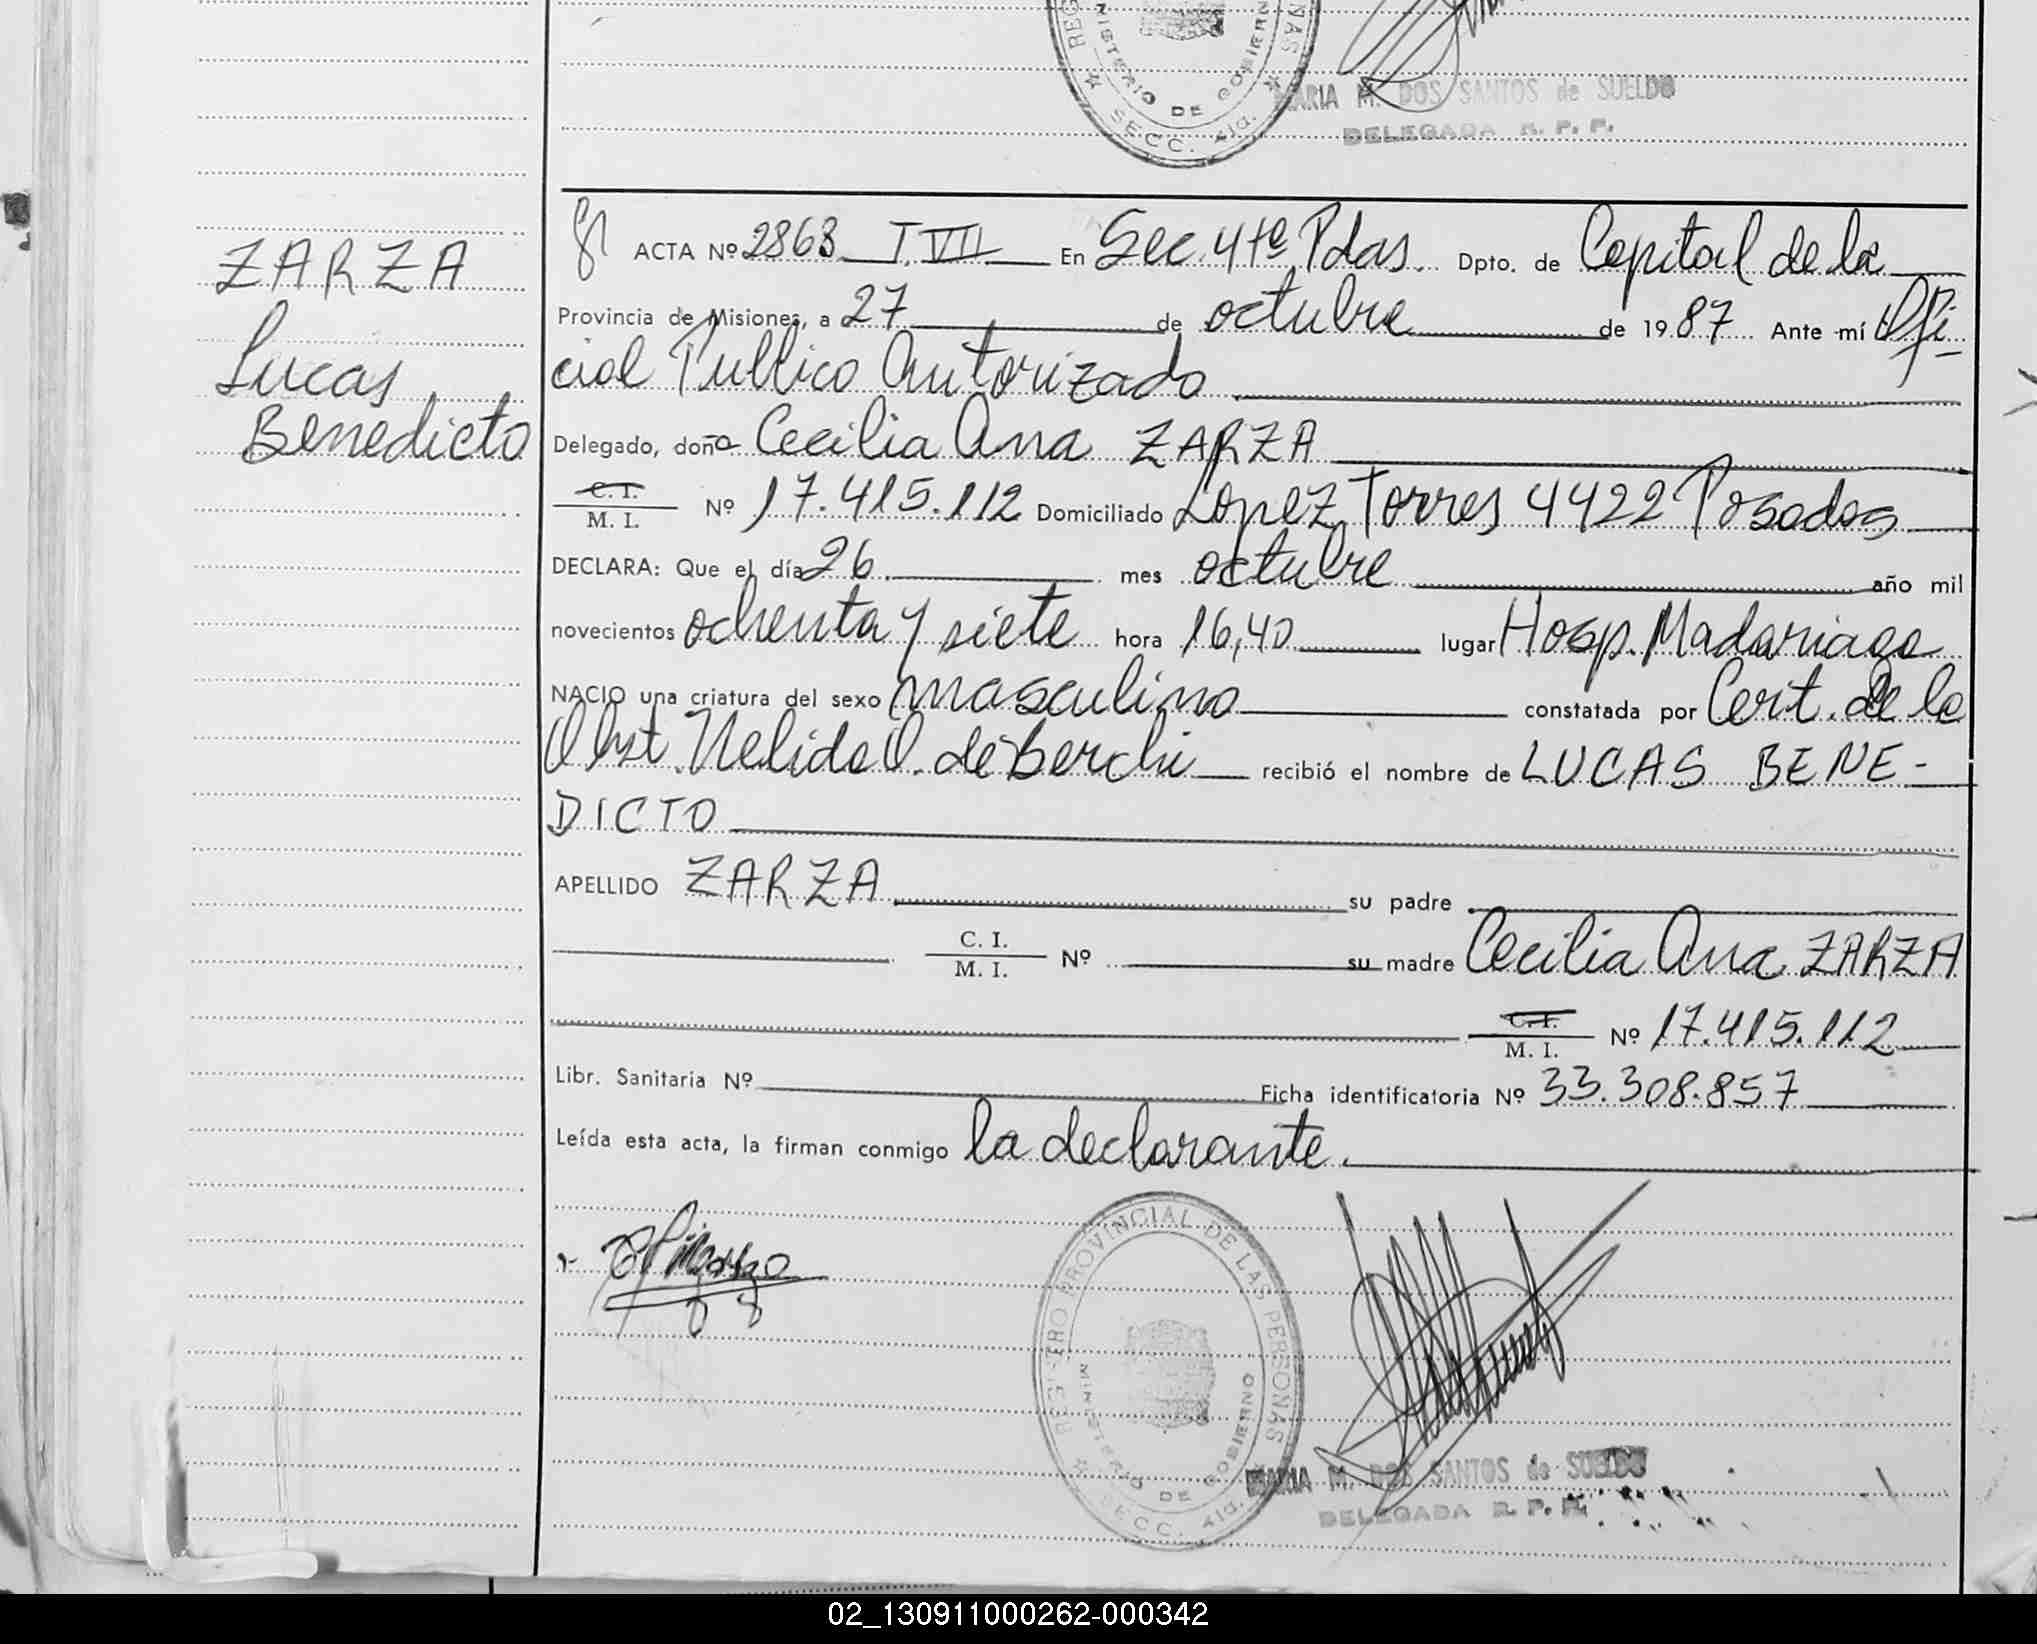 REG NAS
MINISTERIO DE GOBIERNO
SECC. 4ta.
MARIA M. DOS SANTOS de SUELDO
DELEGADA R. P. P.
ZARZA
Lucas
Benedicto
ACTA Nº 2863 T.VII En Sec. 4ta Pdas. Dpto. de Capital de la
Provincia de Misiones, a 27 de octubre de 1987 Ante mí Ofi-
cial Publico Autorizado
Delegado, doña Cecilia Ana ZARZA
C. I. / M. I. Nº 17.415.112 Domiciliado Lopez Torres 4422 Posadas
DECLARA: Que el día 26 mes octubre año mil
novecientos ochenta y siete hora 16,40 lugar Hosp. Madariaga
NACIO una criatura del sexo masculino constatada por Cert. de la
Obst. Nelida O. de Berchi recibió el nombre de LUCAS BENE-
DICTO
APELLIDO ZARZA su padre
C. I. / M. I. Nº su madre Cecilia Ana ZARZA
C. I. / M. I. Nº 17.415.112
Libr. Sanitaria Nº Ficha identificatoria Nº 33.308.857
Leída esta acta, la firman conmigo la declarante.
REGISTRO PROVINCIAL DE LAS PERSONAS
MINISTERIO DE GOBIERNO
SECC. 4ta.
MARIA M. DOS SANTOS de SUELDO
DELEGADA R. P. P.
02_130911000262-000342